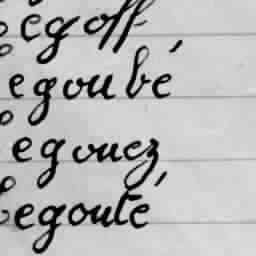 Legoff,
Legoubé
Legouez,
Legouté